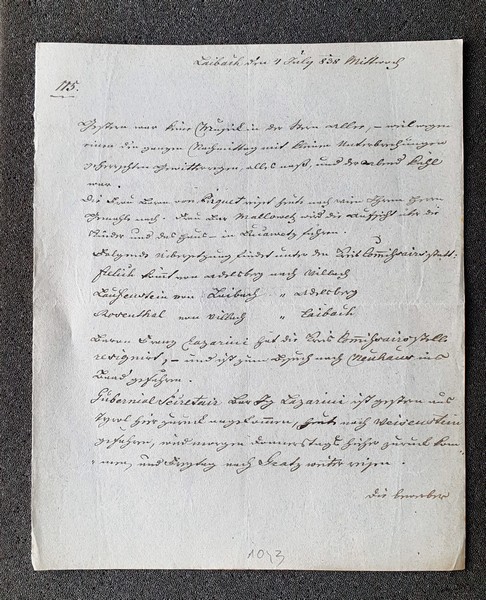 Laibach den 4 July 838 Mittwoch
115.
Gestern war keine Musick in der Stern allee, – weil wegen
einen die ganzen Nachmittag mit kleinen Unterbrechungen
geherrschten Gewitterregen, alles naß, und der abend kühl
war.
Die Frau Baron von reiset heute nach Wien Ihrem Herrn
Gemahle nach. Frau von Mallowetz wird die Aufsicht über die
Kinder und das Haus – in führen.
Folgende Übersetzung findet unter den Kreis Commissairs statt
kömt von Adelsberg nach Villach
Laufenstein von Laibach " Adelsberg
Rosenthal von Villach " Laibach
Baron Franz Lazarini hat die Kreis Commissairs stelle
resignirt, – und ist zum Besuch nach Neuhaus ins
Baad gefahren.
Gubernial Secretair Bar Lazarini ist gestern aus
Tyrol hier zurück angekommen, heute nach Weisenstein
gefahren, wird morgen Donnerstags hieher zurück kom¬
men, und Freytag nach Gratz weiter reisen.
die bewerber
1043